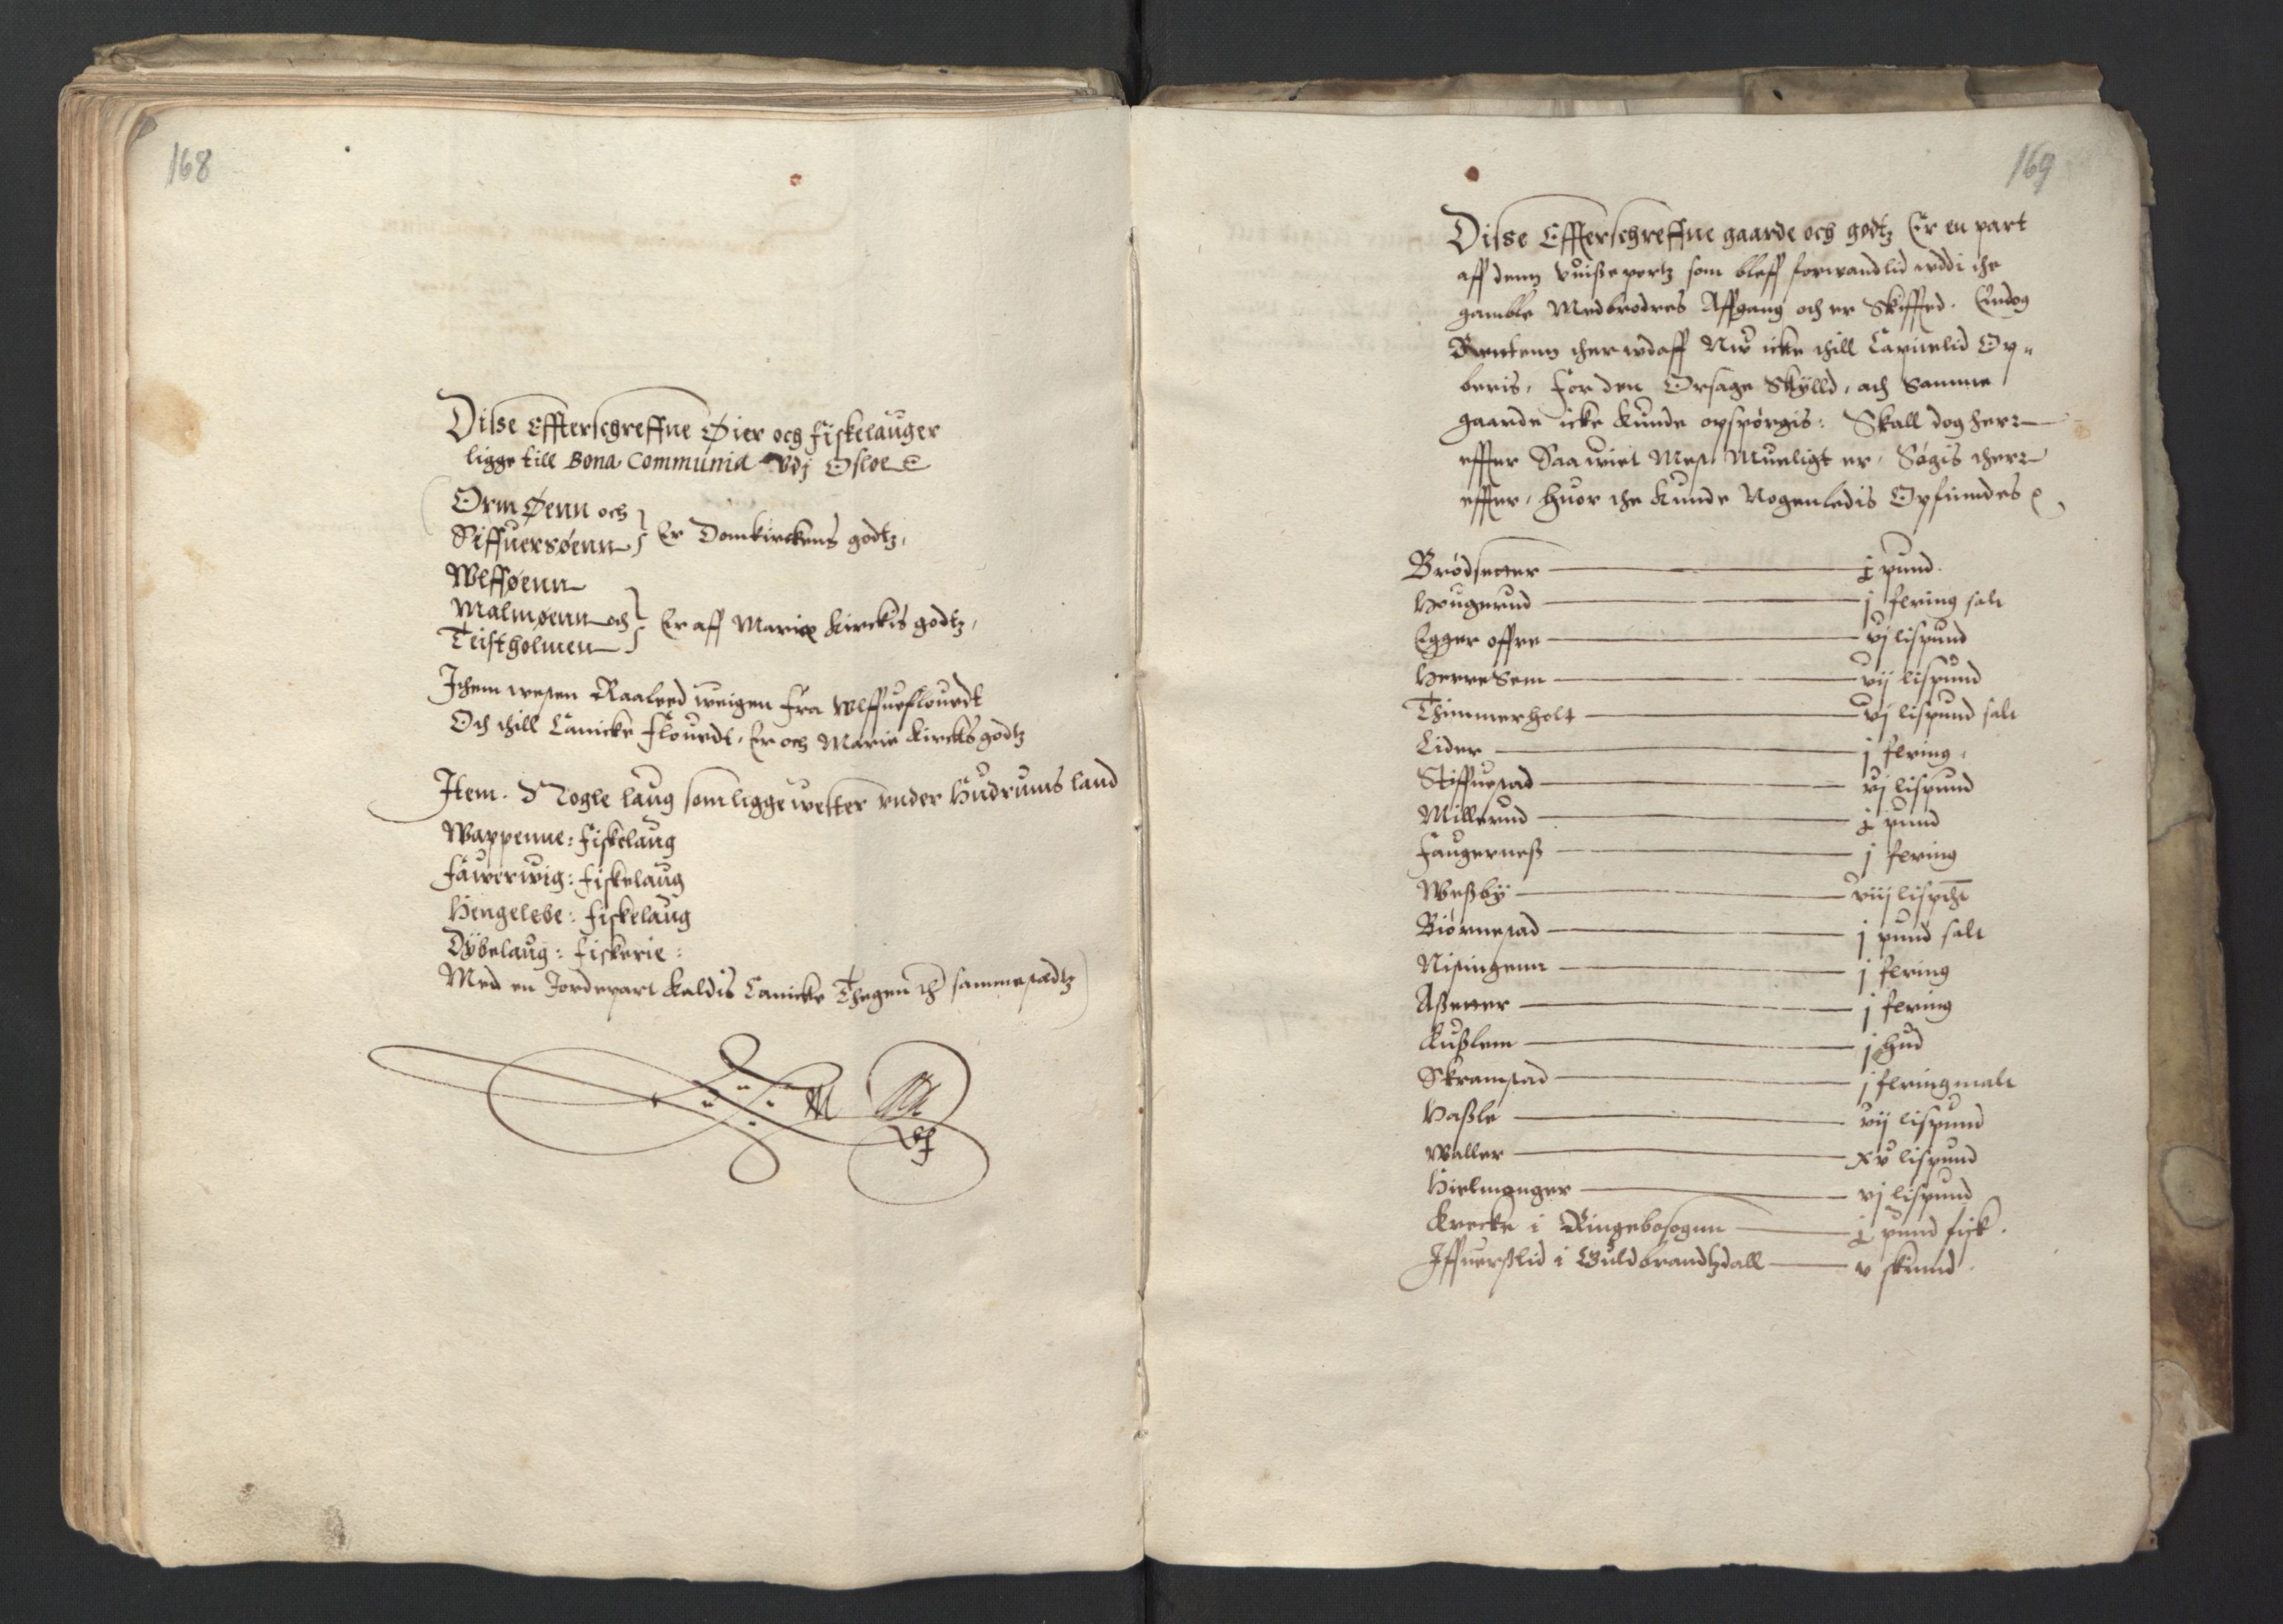 168
Disse Effterschreffne Øier och fiskelauger
ligge till Bona Communia vdj Osloe
Orm Øenn och
Siffuersøenn Er Domkirckens godtz,
Wlfføenn
Malmøenn och
Teistholmen Er aff Mariæ Kirckis godtz,
Jthem westen Raaleed weigen fra Wlffueflouedt
Och thill Canicke flouedt, Er och Marie Kircks godtz
Item. Nogle laug som ligge wester vnder Hudrums land
Wappenne: fiskelaug
Fawerwig: fiskelaug
Hengelebe: fiskelaug
Dybelaug: fiskerie:
Med en Jordepart Kaldis Canicke Thegen th sammestedtz
169
Disse Effterschreffne gaarde och godtz Er en part
aff denn vuisse portz som bleff forwandlid wddi the
gamble Medbrødres Affgang och er Skifftid. Endog
Rentenn ther wdaff Nw icke thill Capitelid Op„
beris, for den Orsage Skylld, ath Samme
gaarde icke kunde opspørgis: Skall dog herr
effter Saa wiet Mest Mueligt er, Søgis therr
effter, huor the kunde Nogenledis Opfindes
Brødsetter j pund.
Hougerud j fering salt
Egger offre vj lispund
Herresem vij lispund
Thimmerholt vj lispund salt
Lider j fering,
Stiffuestad vj lispund
Millerud j pund
Faugerness j fering
Wessby viij lispdt
Biørnestad j pund salt
Nistingenn j fering
Assetter j fering
Kusslem j hud
Skramstad j fering malt
Hassle vij lispund
Waller xv lispund
Hielmanger vj lispund
Krecke i Ringebosognn j pund fisk.
Iffuersslid i Guldbrandtzdall v skinnd.